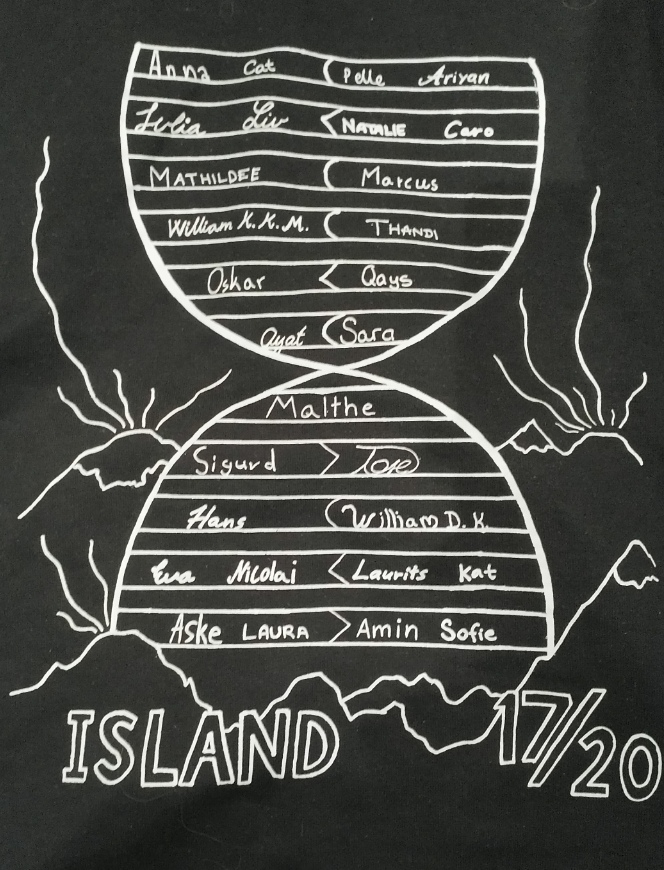 Anna Cat Pelle Ariyan
Julia Liv NATALIE Caro
MATHILDEE Marcus
William K.K.M. THANDI
Oskar Qays
Ayat Sara
Malthe
Sigurd
Hans William D.K.
Eva Nicolai Laurits Kat
Aske LAURA Amin Sofie
ISLAND 17/20